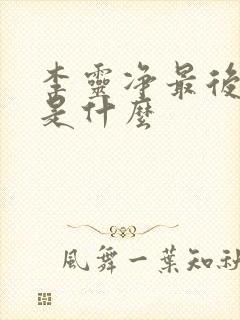 李靈净最後
是什麼
風舞一葉知秋